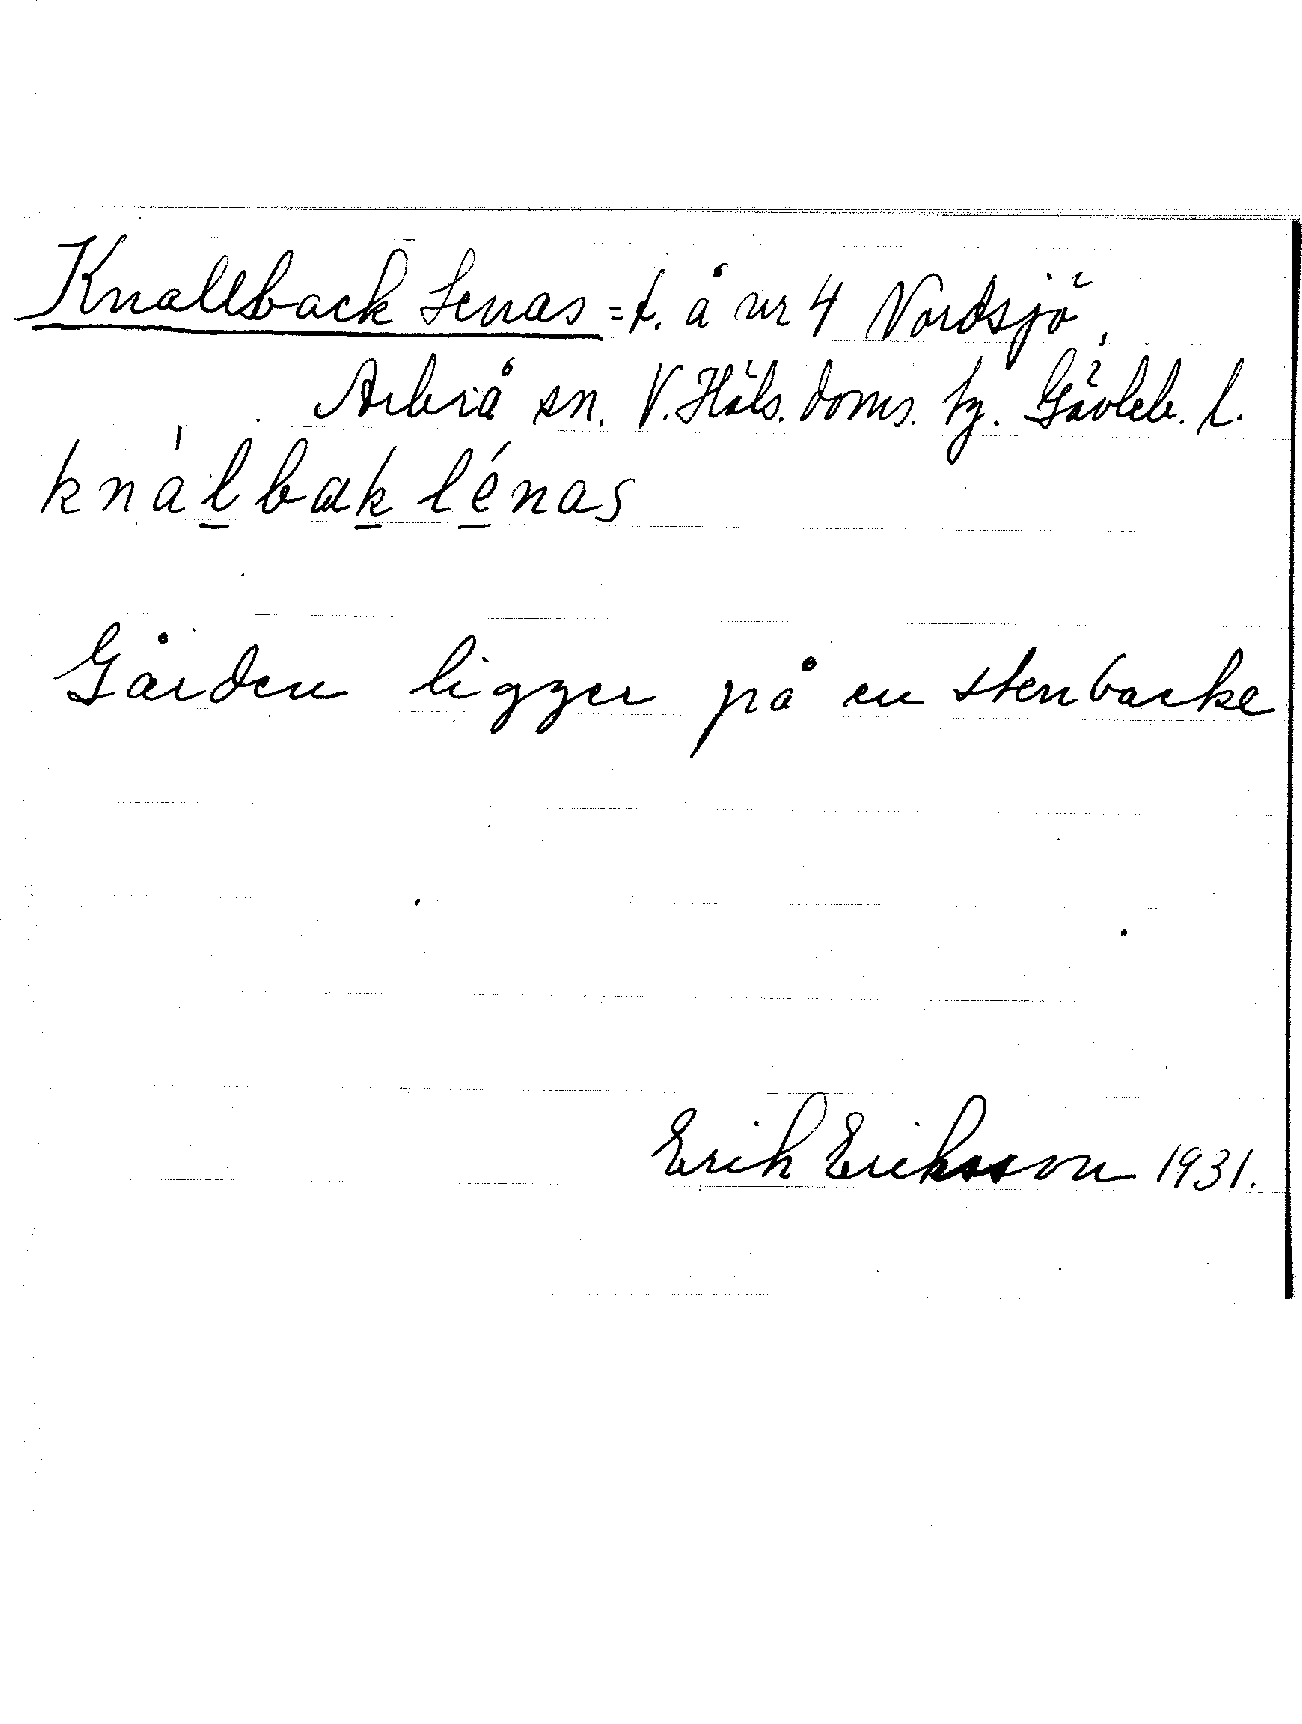 Knallback Lenas = t. å nr 4 Nordsjö,
Arbrå sn. V. Häls. doms. tg. Gävleb. l.
knálbak lénas
Gården ligger på en stenbacke
Erik Eriksson 1931.